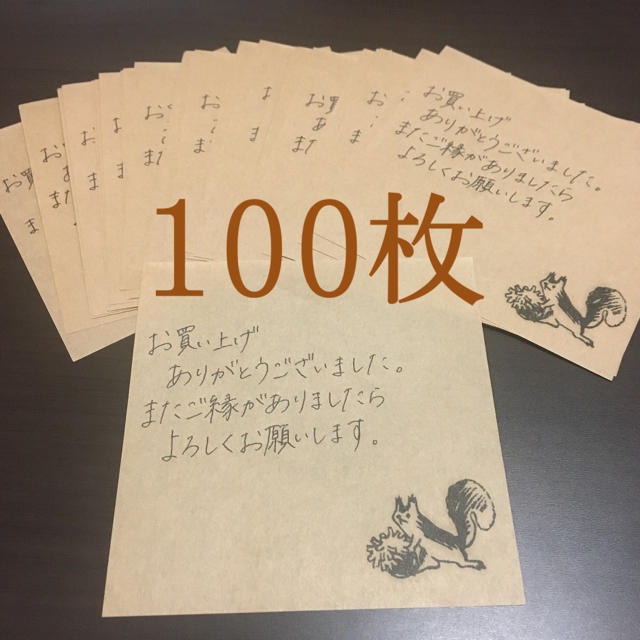 お買い上げ
ありがとうございました。
またご縁がありましたら
よろしくお願いします。
100枚
お買い上げ
ありがとうございました。
またご縁がありましたら
よろしくお願いします。